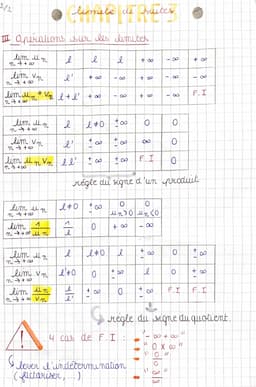 2/2
CHAPITRE 3
limite de suites
III Opérations sur les limites
lim un n→+∞ | l | l | l | +∞ | -∞ | +∞
lim vn n→+∞ | l' | +∞ | -∞ | +∞ | -∞ | -∞
lim un + vn n→+∞ | l+l' | +∞ | -∞ | +∞ | -∞ | F.I
lim un n→+∞ | l | l≠0 | ±∞ | 0 | 0
lim vn n→+∞ | l' | ±∞ | ±∞ | ∞ | 0
lim un vn n→+∞ | ll' | ±∞ | ±∞ | F.I | 0
règle du signe d'un produit
lim un n→+∞ | l≠0 | ±∞ | 0 un>0 | 0 un<0
lim 1/un n→+∞ | 1/l | 0 | +∞ | -∞
lim un n→+∞ | l | l≠0 | l | ±∞ | 0 | ±∞
lim vn n→+∞ | l'≠0 | 0 | ±∞ | l | 0 | ±∞
lim un/vn n→+∞ | l/l' | ±∞ | 0 | ±∞ | F.I | F.I
règle du signe du quotient.
4 cas de F.I : "-∞ + ∞"
"0 × ∞"
"0/0"
"∞/∞"
lever l'indétermination
(factoriser, )